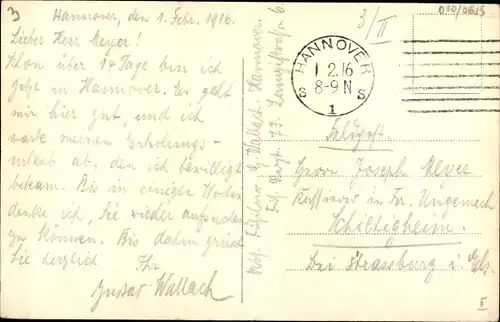 3
Hannover, den 1. Febr. 1916.
Lieber Herr Meyer!
Schon über 14 Tage bin ich
jetzt in Hannover. Es geht
mir hier gut, und ich
warte meinen Erholungs-
urlaub ab, den ich bewilligt
bekam. Bis in einiger Wochen
denke ich, Sie wieder aufsuchen
zu können. Bis dahin grüsst
Sie herzlich Ihr
Gustav Wallach
Abs. Füsilier G. Wallach. Hannover.
Füs. Regt. 73.
6
3/II
010/0615
HANNOVER
1 2.16
8-9 N
S S
1
Feldpost
Herrn Joseph Meyer
Fr. Ungemach
Schiltigheim.
bei Strassburg i. Els.
II